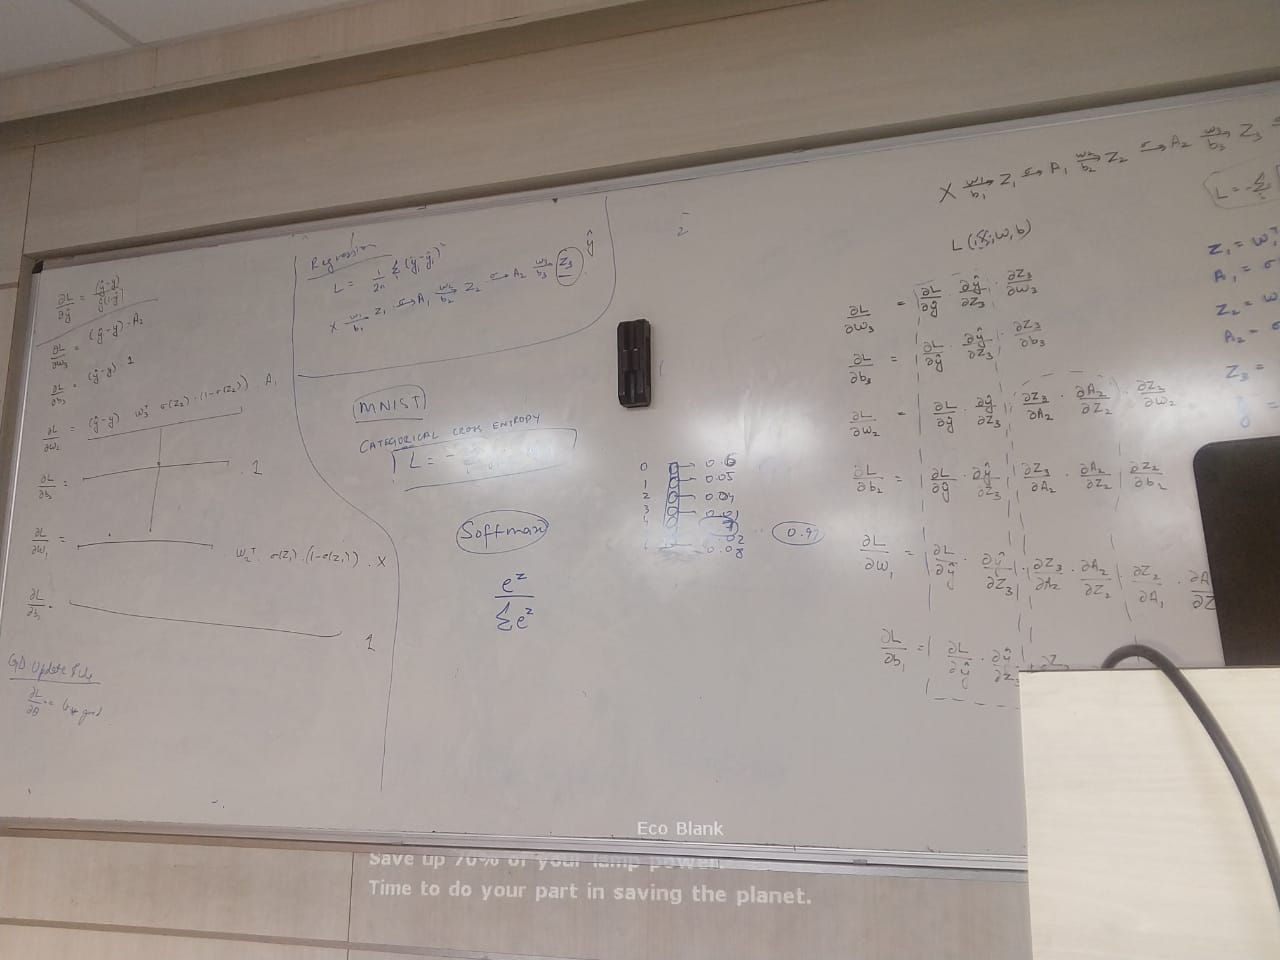 ∂L/∂ŷ = (ŷ-y)/ŷ(1-ŷ)
∂L/∂w₃ = (ŷ-y)·A₂
∂L/∂b₃ = (ŷ-y)·1
∂L/∂w₂ = (ŷ-y) w₃ᵀ σ(Z₂)·(1-σ(Z₂))·A₁
∂L/∂b₂ = · 1
∂L/∂w₁ = w₂ᵀ·σ(Z₁)·(1-σ(Z₁))·X
∂L/∂b₁ = 1
GD Update
∂L/∂θ =
Regression
L = 1/2n Σ(ŷᵢ-yᵢ)²
X w₁/b₁→ Z₁ σ→ A₁ w₂/b₂→ Z₂ σ→ A₂ w₃/b₃→ Z₃ ŷ
MNIST
CATEGORICAL CROSS ENTROPY
L = -
Softmax
e^z/Σe^z
0 0.6
1 0.05
2 0.04
3 0.01
4
0.02
0.08
0.97
X w₁/b₁→ Z₁ σ→ A₁ w₂/b₂→ Z₂ σ→ A₂ w₃/b₃→ Z₃
L = -Σ
L(x;w,b)
∂L/∂w₃ = ∂L/∂ŷ · ∂ŷ/∂Z₃ · ∂Z₃/∂w₃
∂L/∂b₃ = ∂L/∂ŷ · ∂ŷ/∂Z₃ · ∂Z₃/∂b₃
∂L/∂w₂ = ∂L/∂ŷ · ∂ŷ/∂Z₃ · ∂Z₃/∂A₂ · ∂A₂/∂Z₂ · ∂Z₂/∂w₂
∂L/∂b₂ = ∂L/∂ŷ · ∂ŷ/∂Z₃ · ∂Z₃/∂A₂ · ∂A₂/∂Z₂ · ∂Z₂/∂b₂
∂L/∂w₁ = ∂L/∂ŷ · ∂ŷ/∂Z₃ · ∂Z₃/∂A₂ · ∂A₂/∂Z₂ · ∂Z₂/∂A₁ · ∂A/∂Z
∂L/∂b₁ = ∂L/∂ŷ · ∂ŷ/∂Z₃ · ∂Z
Z₁ = w₁
A₁ = σ
Z₂ = w
A₂ = σ
Z₃ =
Eco Blank
Save up 70% of your lamp power.
Time to do your part in saving the planet.